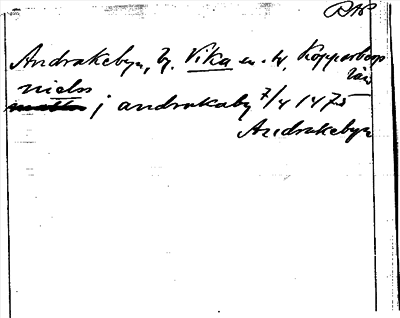 Andrakebyn, by. Vika sn. W. Kopparbergs
län
niels
j andrakaby 7/4 1475
Andrakebyn